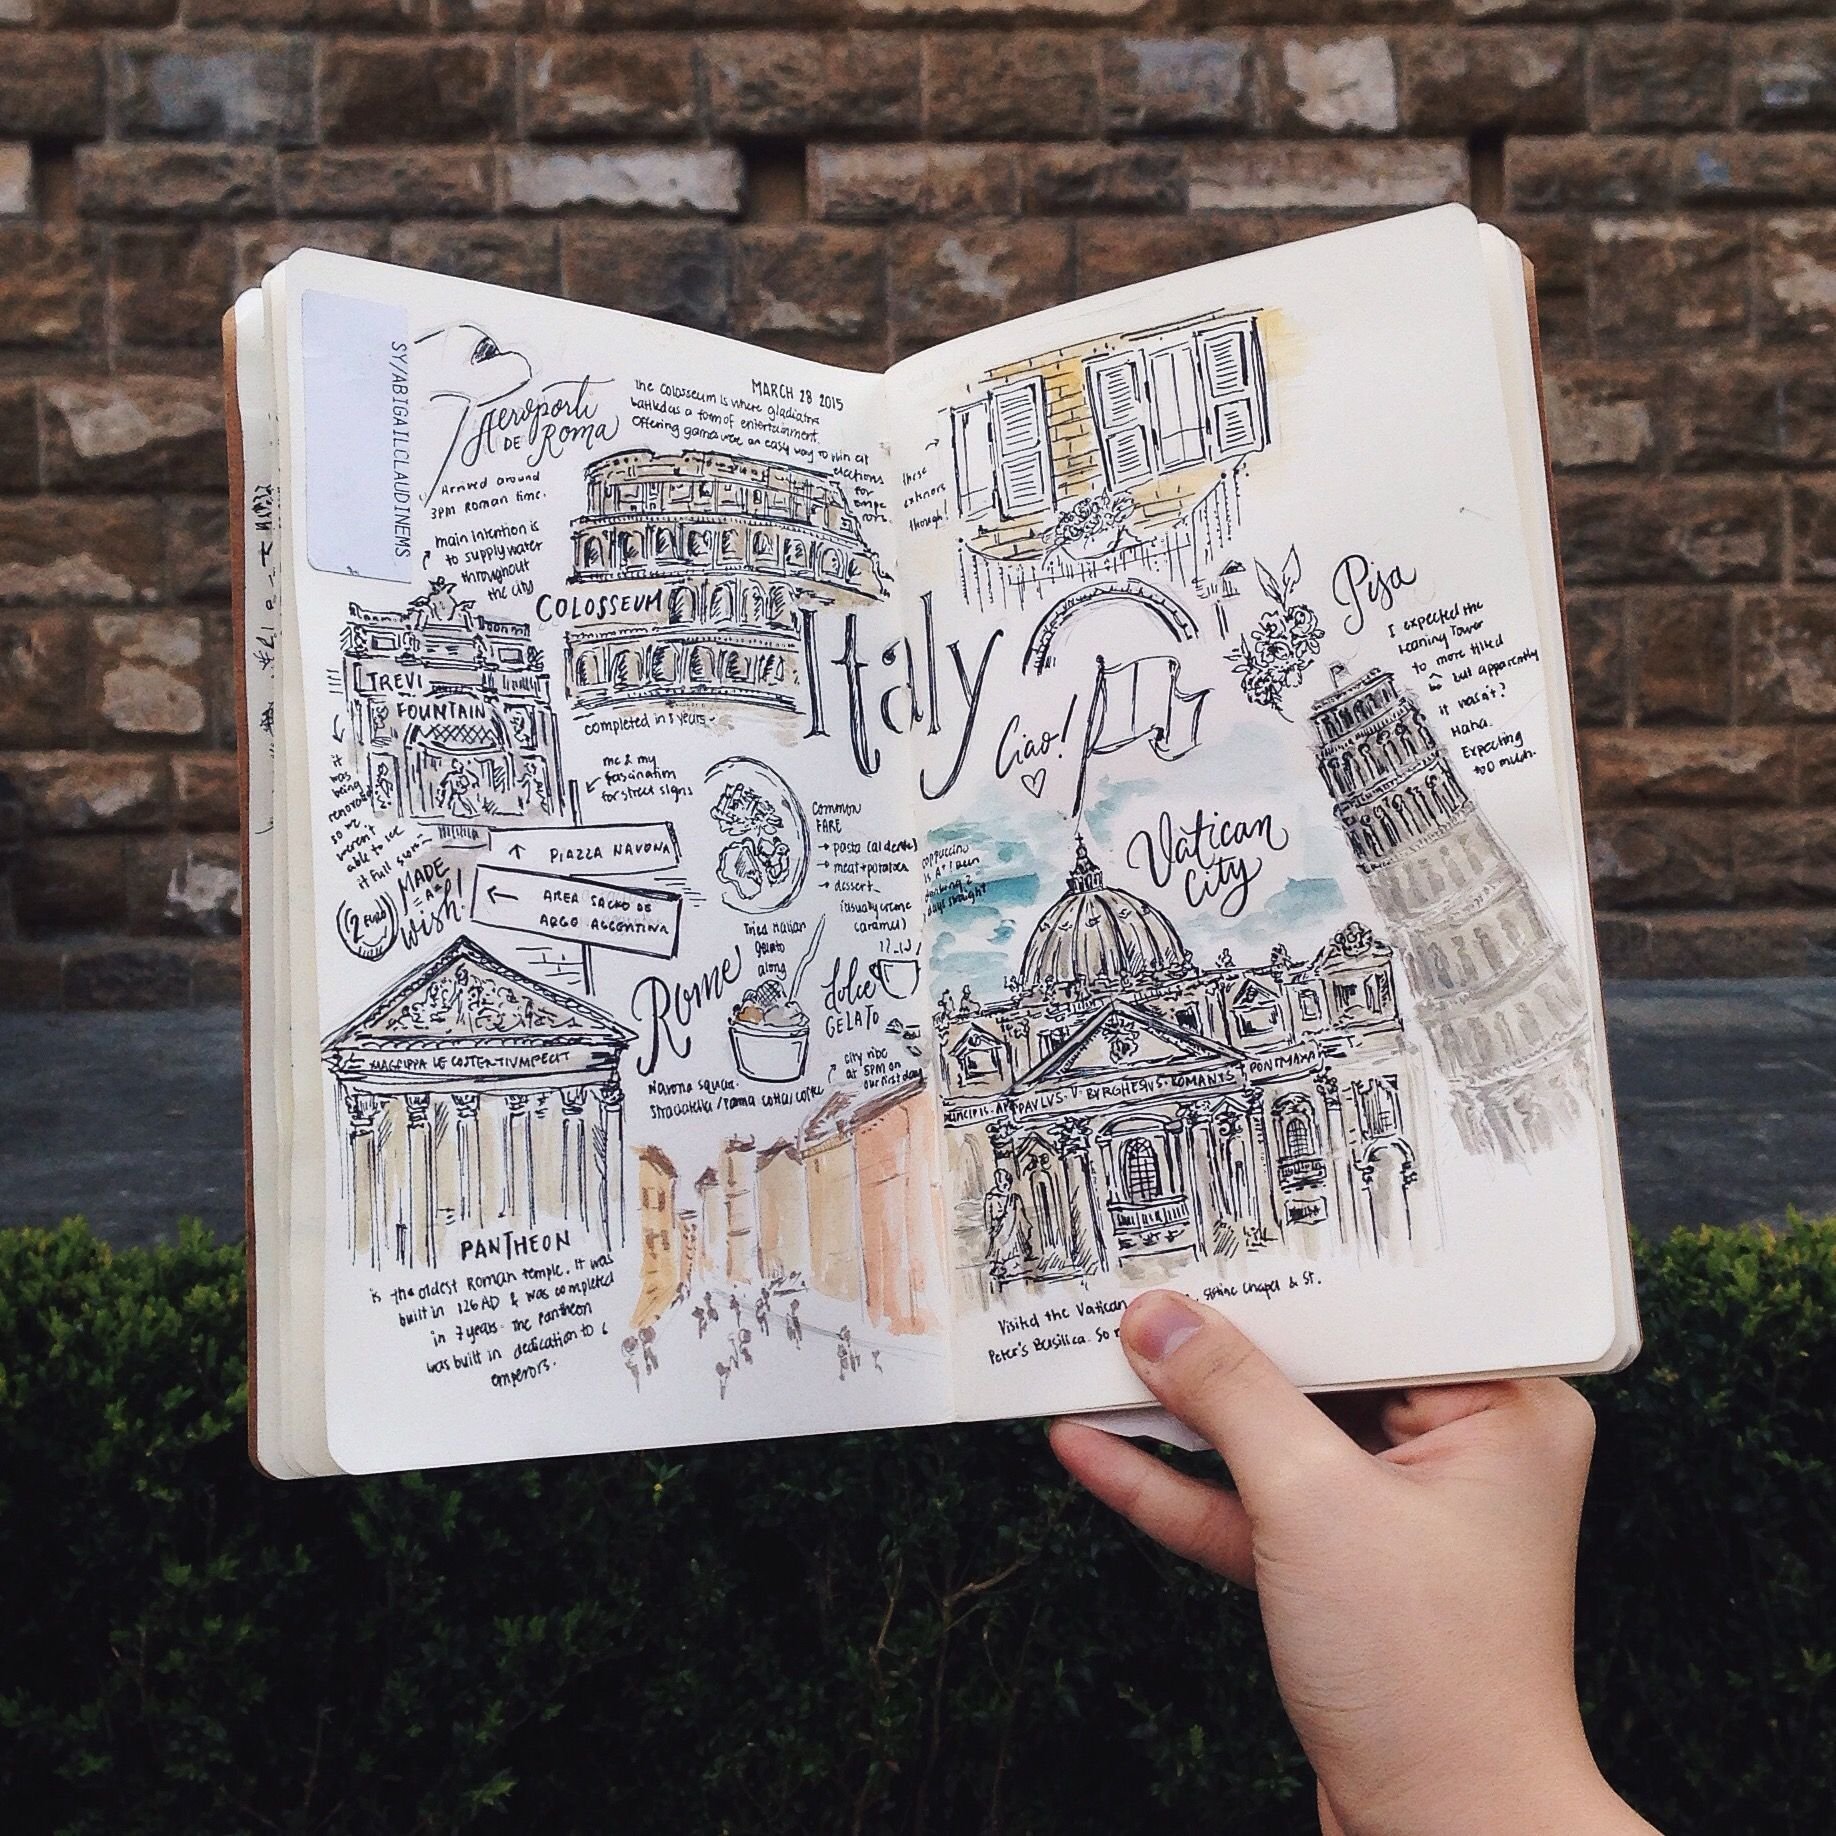 SY/ABIGAILCLAUDINEMS.
Aeroporti
DE Roma
Arrived around
3PM Roman time.
MARCH 28 2015
the Colosseum is where gladiators
battled as a form of entertainment.
Offering games were an easy way to win at
elections
for
empe
rors.
main intention is
to supply water
throughout
the city
COLOSSEUM
completed in 8 years
TREVI
FOUNTAIN
it
was
being
renovated
so we
weren't
able to see
it full
MADE
=A=
wish!
2 EURO
me & my
fascination
for street signs
PIAZZA NAVONA
AREA SACRO DE
ARGO ARGENTINA
COMMON
FARE
→ pasta (al dente)
→ meat + potatoes
→ dessert
(usually creme
caramel)
Rome
Tried Italian
gelato
along
Navona Square.
Stracciatella / Panna cotta / coffee
dolce
GELATO
city vibe
at 5PM on
our first day
PANTHEON
is the oldest Roman temple. It was
built in 126 AD & was completed
in 7 years. The Pantheon
was built in dedication to 6
emperors.
Italy
these
exteriors
though!
Ciao!
cappuccino
is A+! Been
drinking 2
days straight
Vatican
City
PAVLVS · V · BVRGHESIVS · ROMANVS
PONT MAX A
Pisa
I expected the
Leaning Tower
to more tilted
be
but apparently
it wasn't?
Haha.
Expecting
too much.
Visited the Vatican Sistine Chapel & St.
Peter's Basilica. So